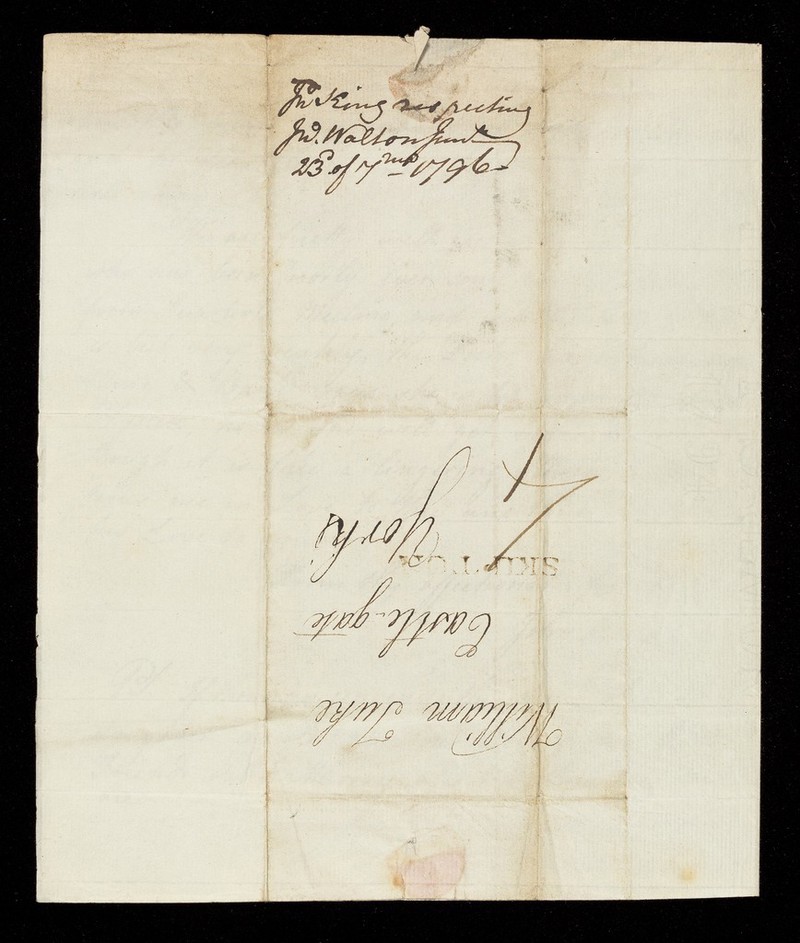 Jno. King respecting
Jno. Walton Junr
23d of 7mo 1796
William Tuke
Castle-gate
York
SKIPTON